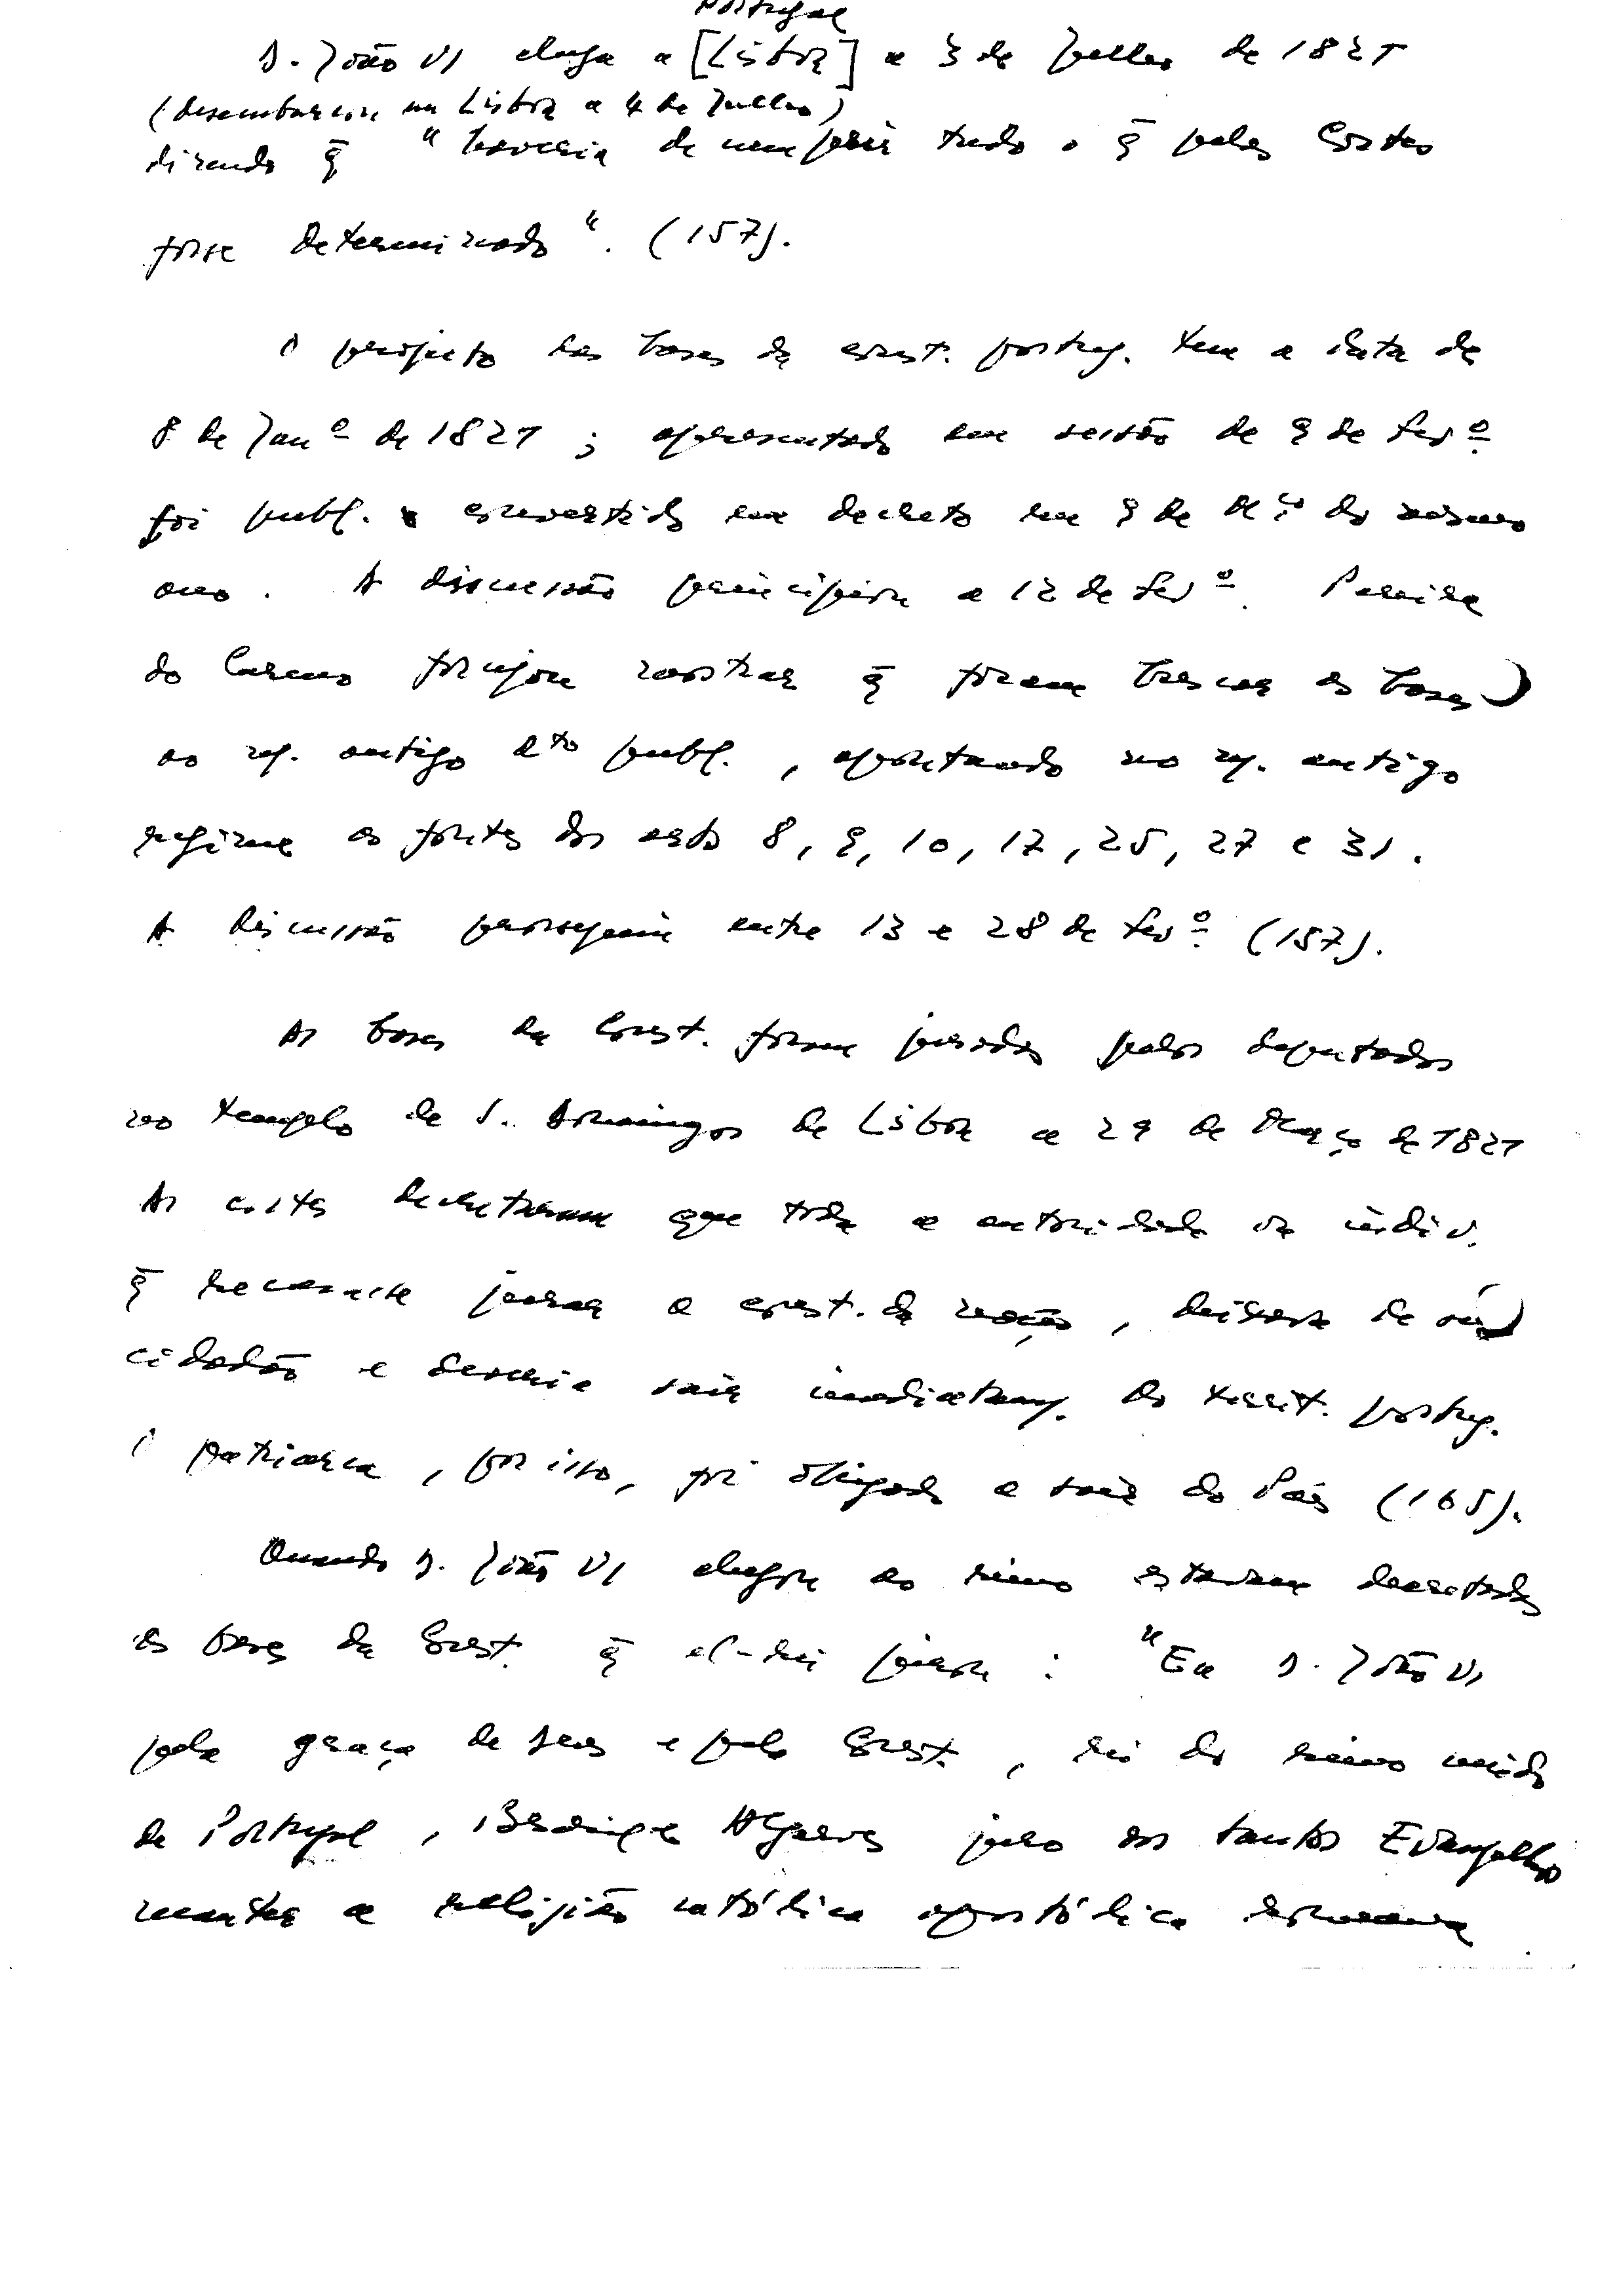 Portugal
D. João VI chega a [Lisboa] a 3 de Julho de 1821
(desembarcou em Lisboa a 4 de Julho)
dizendo q̄ "haveria de cumprir tudo o q̄ pelas Cortes
fosse determinado". (157).
O projecto das bases da const. portug. tem a data de
8 de Janº de 1821; apresentado em sessão de 9 de Fevº
foi publ. e convertido em decreto em 9 de Mço do mesmo
ano. A discussão principiou a 12 de Fevº. Pereira
do Carmo forcejou mostrar q̄ foram buscar as bases
ao antigo dto publ., apontando no antigo
regime as fontes dos arts 8, 9, 10, 17, 25, 27 e 31.
A discussão prosseguiu entre 13 e 28 de Fevº (157).
As bases da Const. foram juradas pelos deputados
no templo de S. Domingos de Lisboa a 29 de Março de 1821
As cortes decretaram que toda a autoridade ou indiv.
q̄ recusasse jurar a const. da nação, deixava de ser
cidadão e deveria sair imediatam. do territ. portug.
O patriarca, por isso, foi obrigado a sair do País (165).
Quando D. João VI chegou ao reino estavam decretadas
as bases da Const. q̄ el-rei jurou: "Eu D. João VI
pela graça de Deus e pela Const., rei do reino unido
de Portugal, Brasil e Algarves juro aos Santos Evangelhos
manter a religião católica apostólica romana